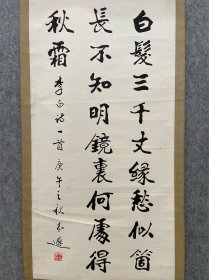 白髮三千丈緣愁似箇
長不知明鏡裏何處得
秋霜 李白詩一首 庚午之秋